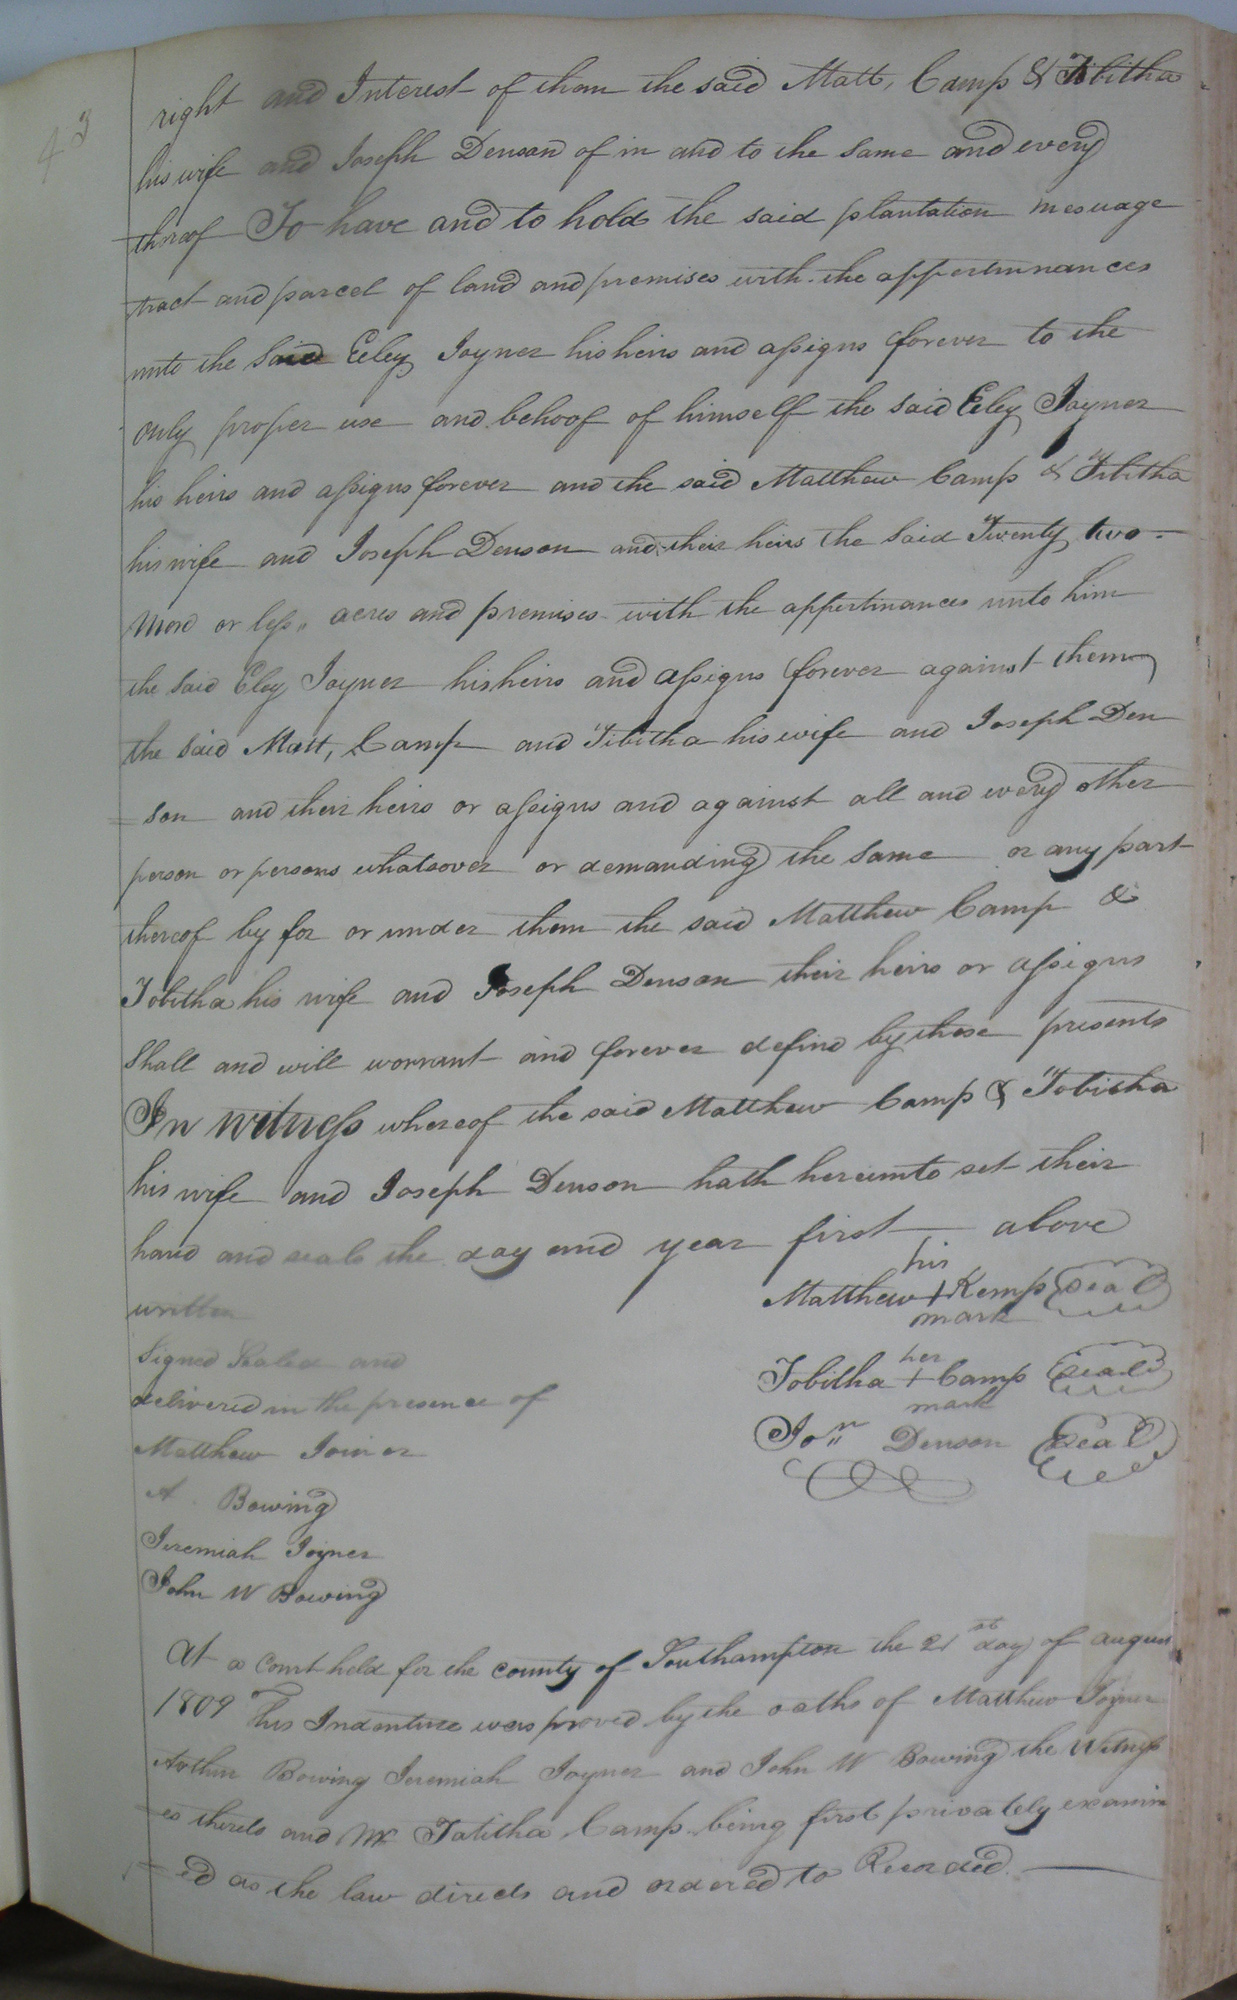 43
right and Interest of them the said Matt, Camp & Tibitha
his wife and Joseph Denson of in and to the same and every
thereof To have and to hold the said plantation mesuage
tract and parcel of land and premises with the appertinnances
unto the said Eley Joyner his heirs and assigns forever to the
only proper use and behoof of himself the said Eley Joyner
his heirs and assigns forever and the said Matthew Camp & Tibitha
his wife and Joseph Denson and their heirs the said Twenty two
More or less acres and premises with the appertinances unto him
the said Eley Joyner his heirs and assigns forever against them
the said Matt, Camp and Tibitha his wife and Joseph Den
= son and their heirs or assigns and against all and every other
person or persons whatsover or demanding the same or any part
thereof by for or under them the said Matthew Camp &
Tobitha his wife and Joseph Denson their heirs or assigns
Shall and will worrant and forever defind by these presents
In witness whereof the said Matthew Camp & Tobitha
his wife and Joseph Denson hath hereunto set their
hand and seals the day and year first above
written
his
Matthew + Kemp Seal
mark
Signed Sealed and
delivered in the presence of
her
Tobitha + Camp Seal
mark
Matthew Joiner
Jo,,n Denson Seal
A Bowing
Jeremiah Joyner
John W Bowing
At a Court held for the county of Southampton the 21st day of august
1809 This Indenture was proved by the oaths of Matthew Joyner
Arthur Bowing Jeremiah Joyner and John W Bowing the Witness
= es thereto and Tabitha Camp being first privately examin
= ed as the law directs and ordered to Recorded